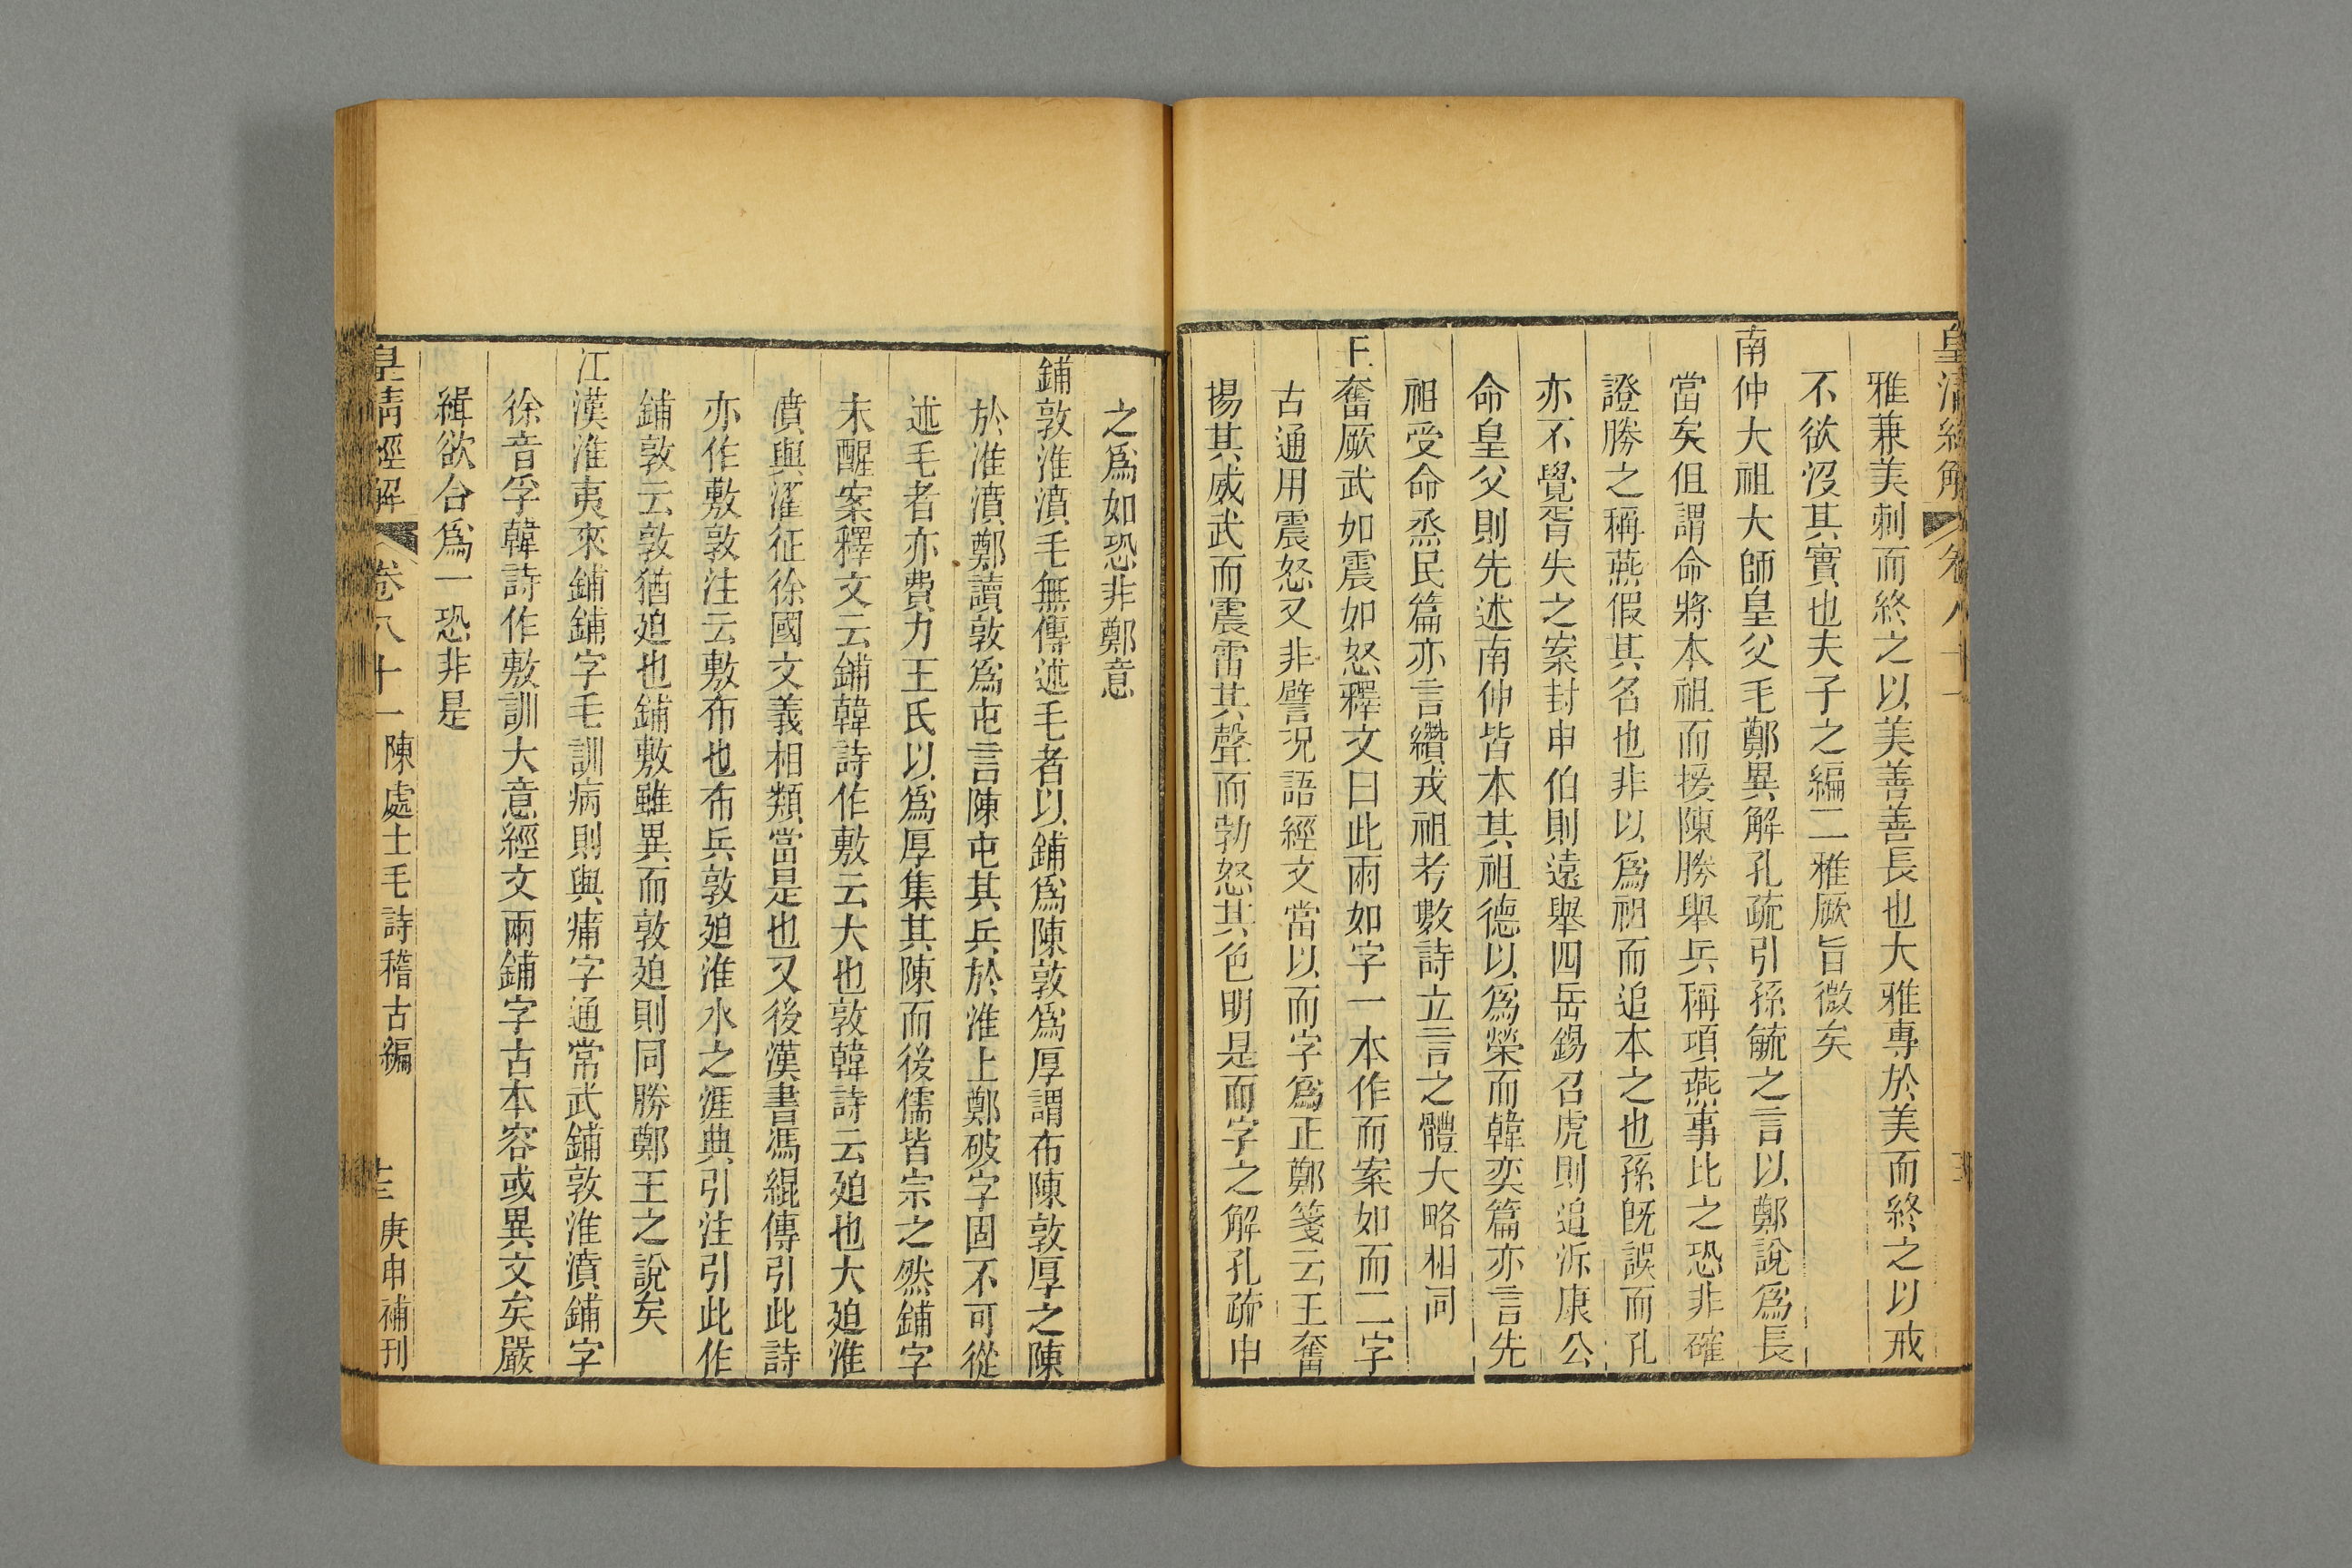 皇清經解
卷八十一
雅兼美刺而終之以美善善長也大雅專於美而終之以戒
不欲沒其實也夫子之編二雅厥旨微矣
南仲大祖大師皇父毛鄭異解孔疏引孫毓之言以鄭說爲長
當矣但謂命將本祖而援陳勝舉兵稱項燕事比之恐非確
證勝之稱燕假其名也非以爲祖而追本之也孫旣誤而孔
亦不覺胥失之案封申伯則遠舉四岳錫召虎則追泝康公
命皇父則先述南仲皆本其祖德以爲榮而韓奕篇亦言先
祖受命烝民篇亦言纘戎祖考數詩立言之體大略相同
王奮厥武如震如怒釋文曰此兩如字一本作而案如而二字
古通用震怒又非譬況語經文當以而字爲正鄭箋云王奮
揚其威武而震雷其聲而勃怒其色明是而字之解孔疏申
之爲如恐非鄭意
鋪敦淮濆毛無傳述毛者以鋪爲陳敦爲厚謂布陳敦厚之陳
於淮濆鄭讀敦爲屯言陳屯其兵於淮上鄭破字固不可從
述毛者亦費力王氏以爲厚集其陳而後儒皆宗之然鋪字
未醒案釋文云鋪韓詩作敷云大也敦韓詩云廹也大廹淮
濆與濯征徐國文義相類當是也又後漢書馮緄傳引此詩
亦作敷敦注云敷布也布兵敦廹淮水之涯典引注引此作
鋪敦云敦猶廹也鋪敷雖異而敦廹則同勝鄭王之說矣
江漢淮夷來鋪鋪字毛訓病則與痡字通常武鋪敦淮濆鋪字
徐音孚韓詩作敷訓大意經文兩鋪字古本容或異文矣嚴
緝欲合爲一恐非是
皇清經解
卷八十一
陳處士毛詩稽古編
庚申補刊